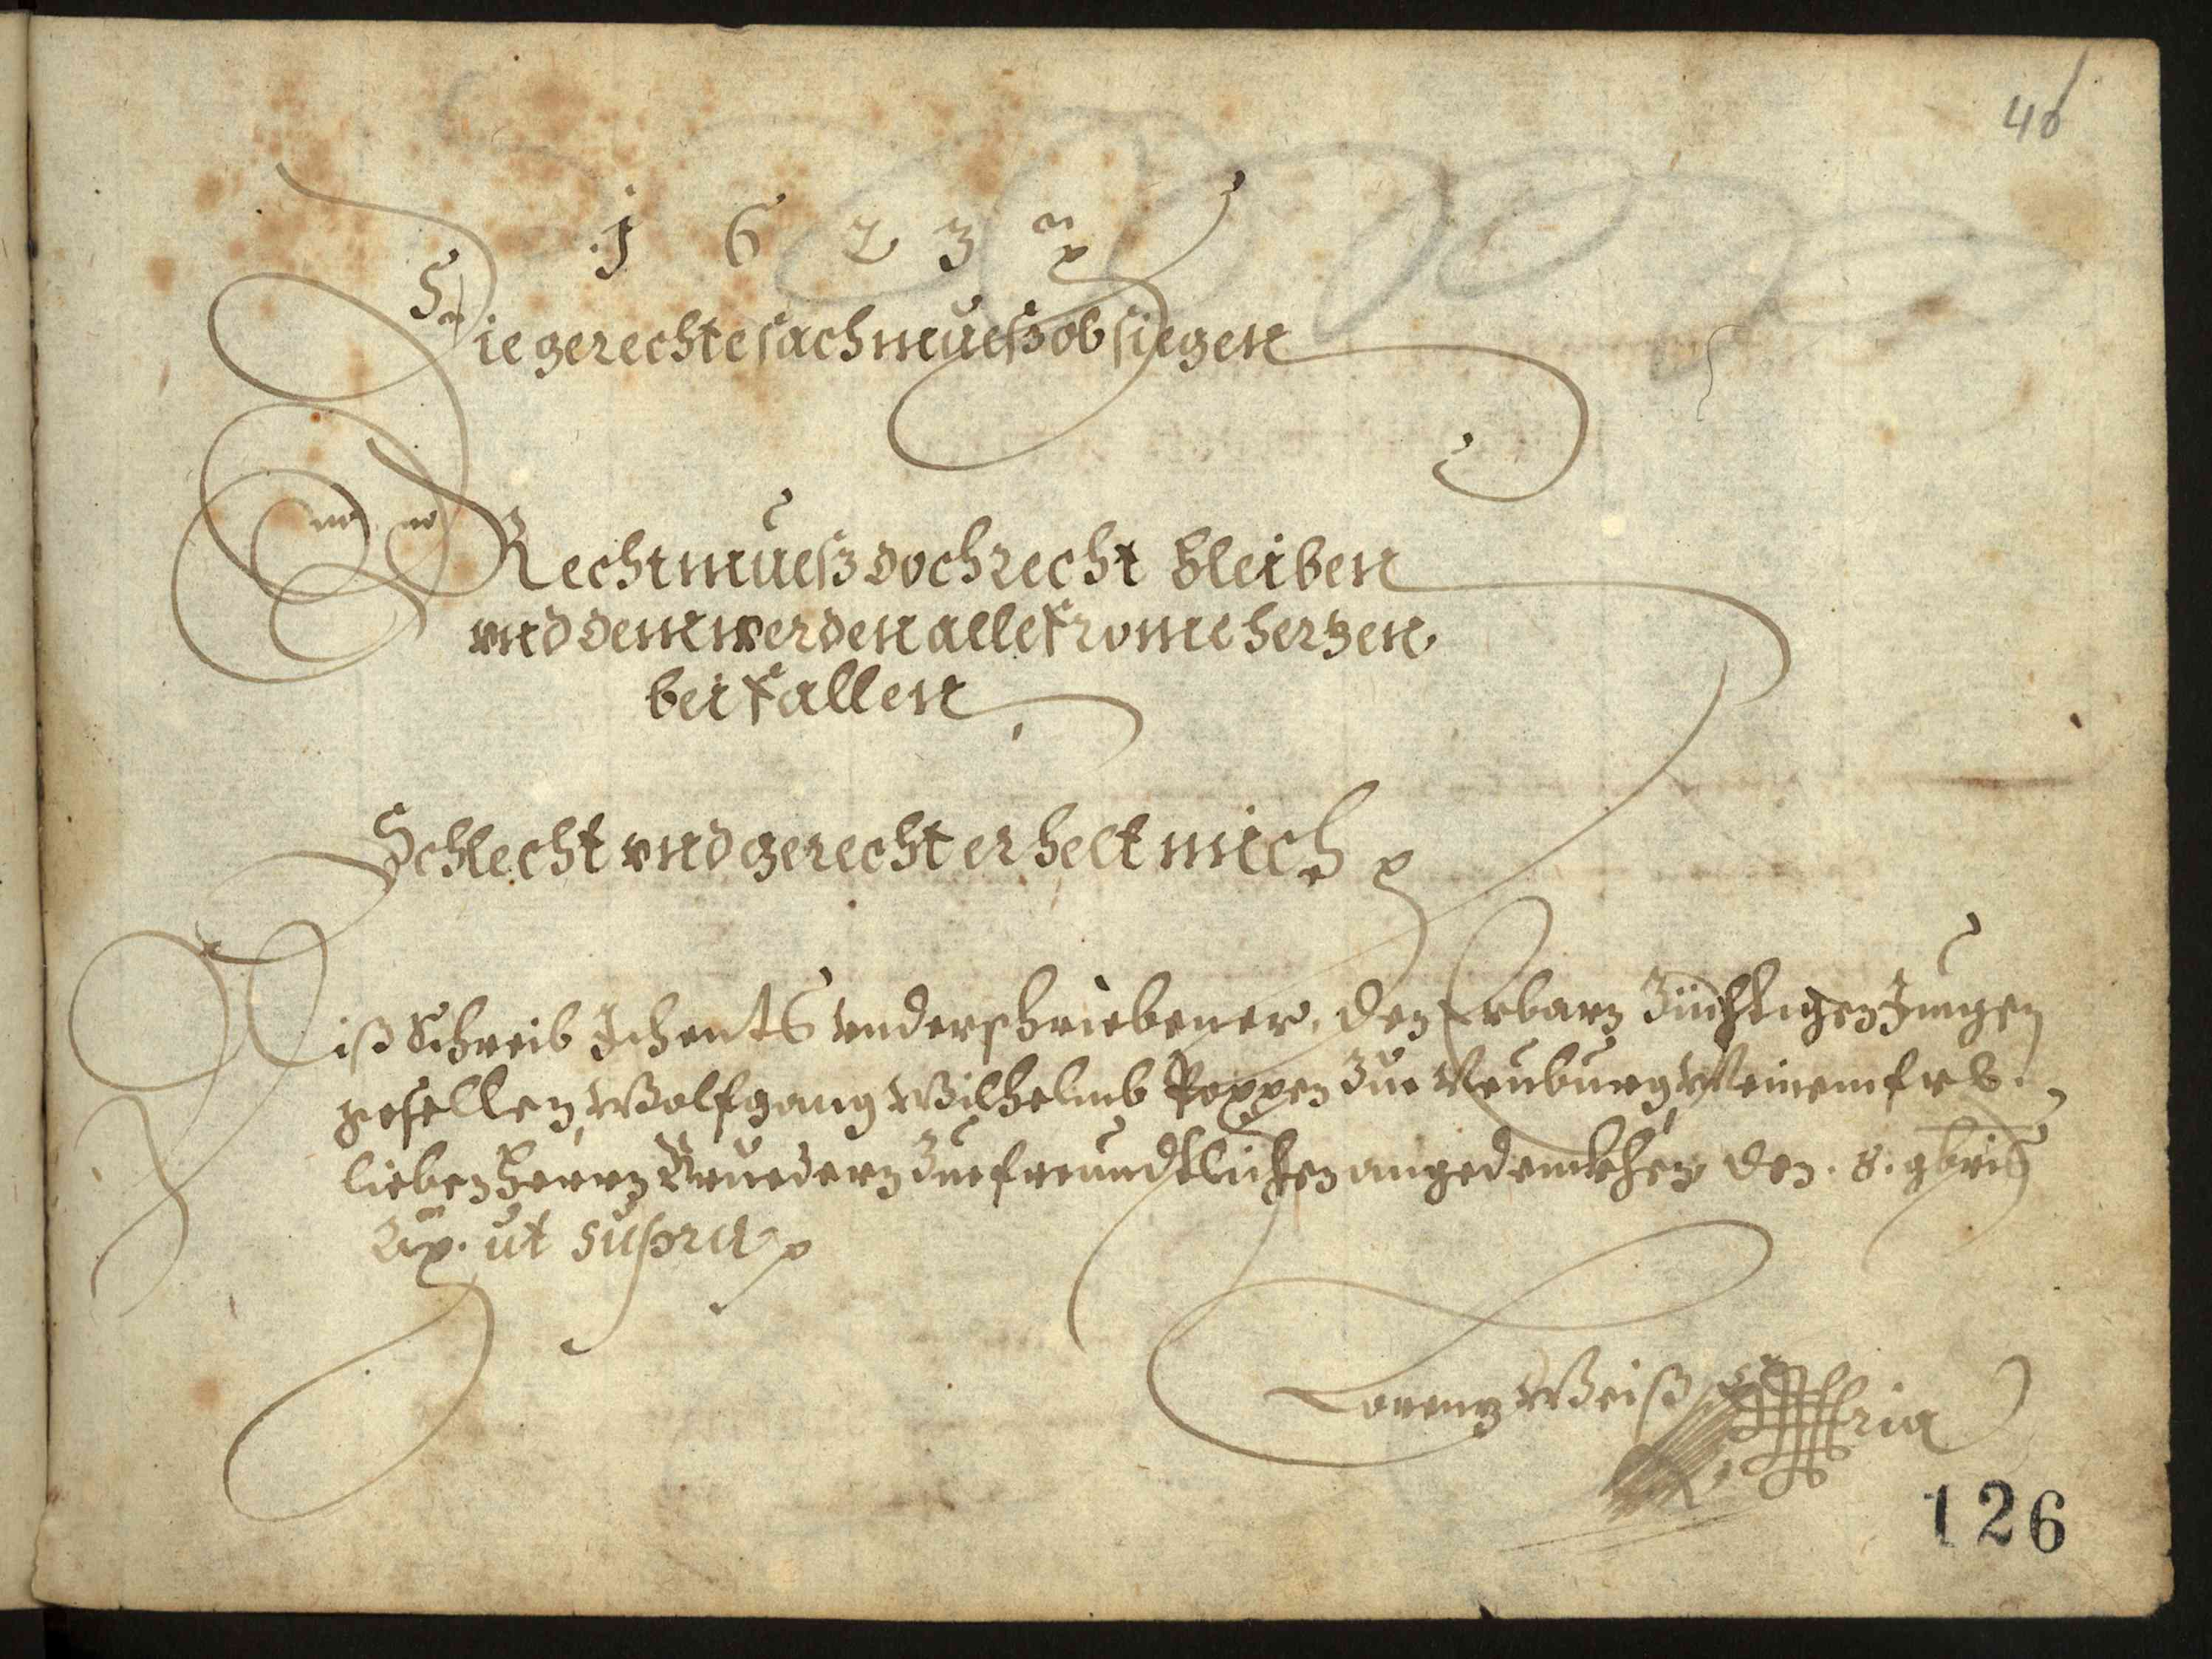 40
1 6 2 3
Die gerechte sach mueß obsiegen
Recht mueß doch recht bleiben
vnd dem werden alle frome hertzen
beifallen
Schlecht vnd gerecht erhelt mich
Diß Schreib Ich entß vnderschriebener, den Erbarn Züchtigen Jungen
gesellen, Wolfgang Wilhelmb Poppen Zue Neuburg, Meinem
lieben Herrn Bruedern Zue freundtlichen angedenckhen, den . 8 . 9bris
ut supra
Lorentz Weiß
126